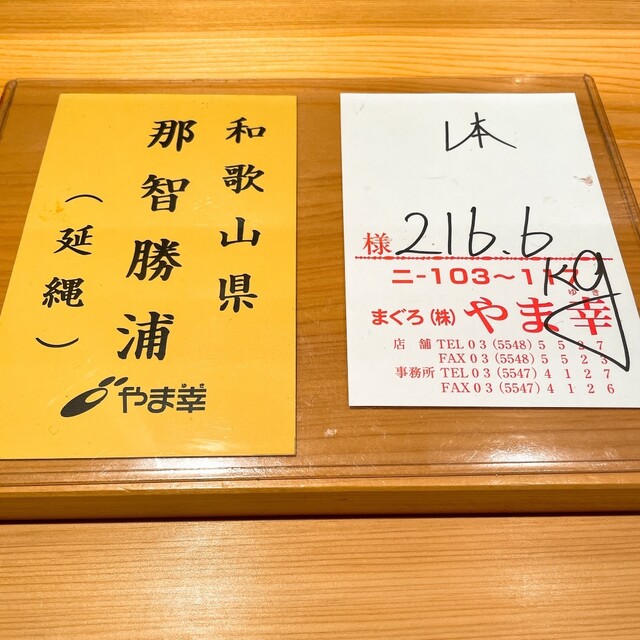 和歌山県
那智勝浦
（延縄）
やま幸
本
様 216.6
KG
ニ-103〜11
ゆき
まぐろ(株) やま幸
店舗 TEL 03 (5548) 5527
FAX 03 (5548) 5523
事務所 TEL 03 (5547) 4127
FAX 03 (5547) 4126